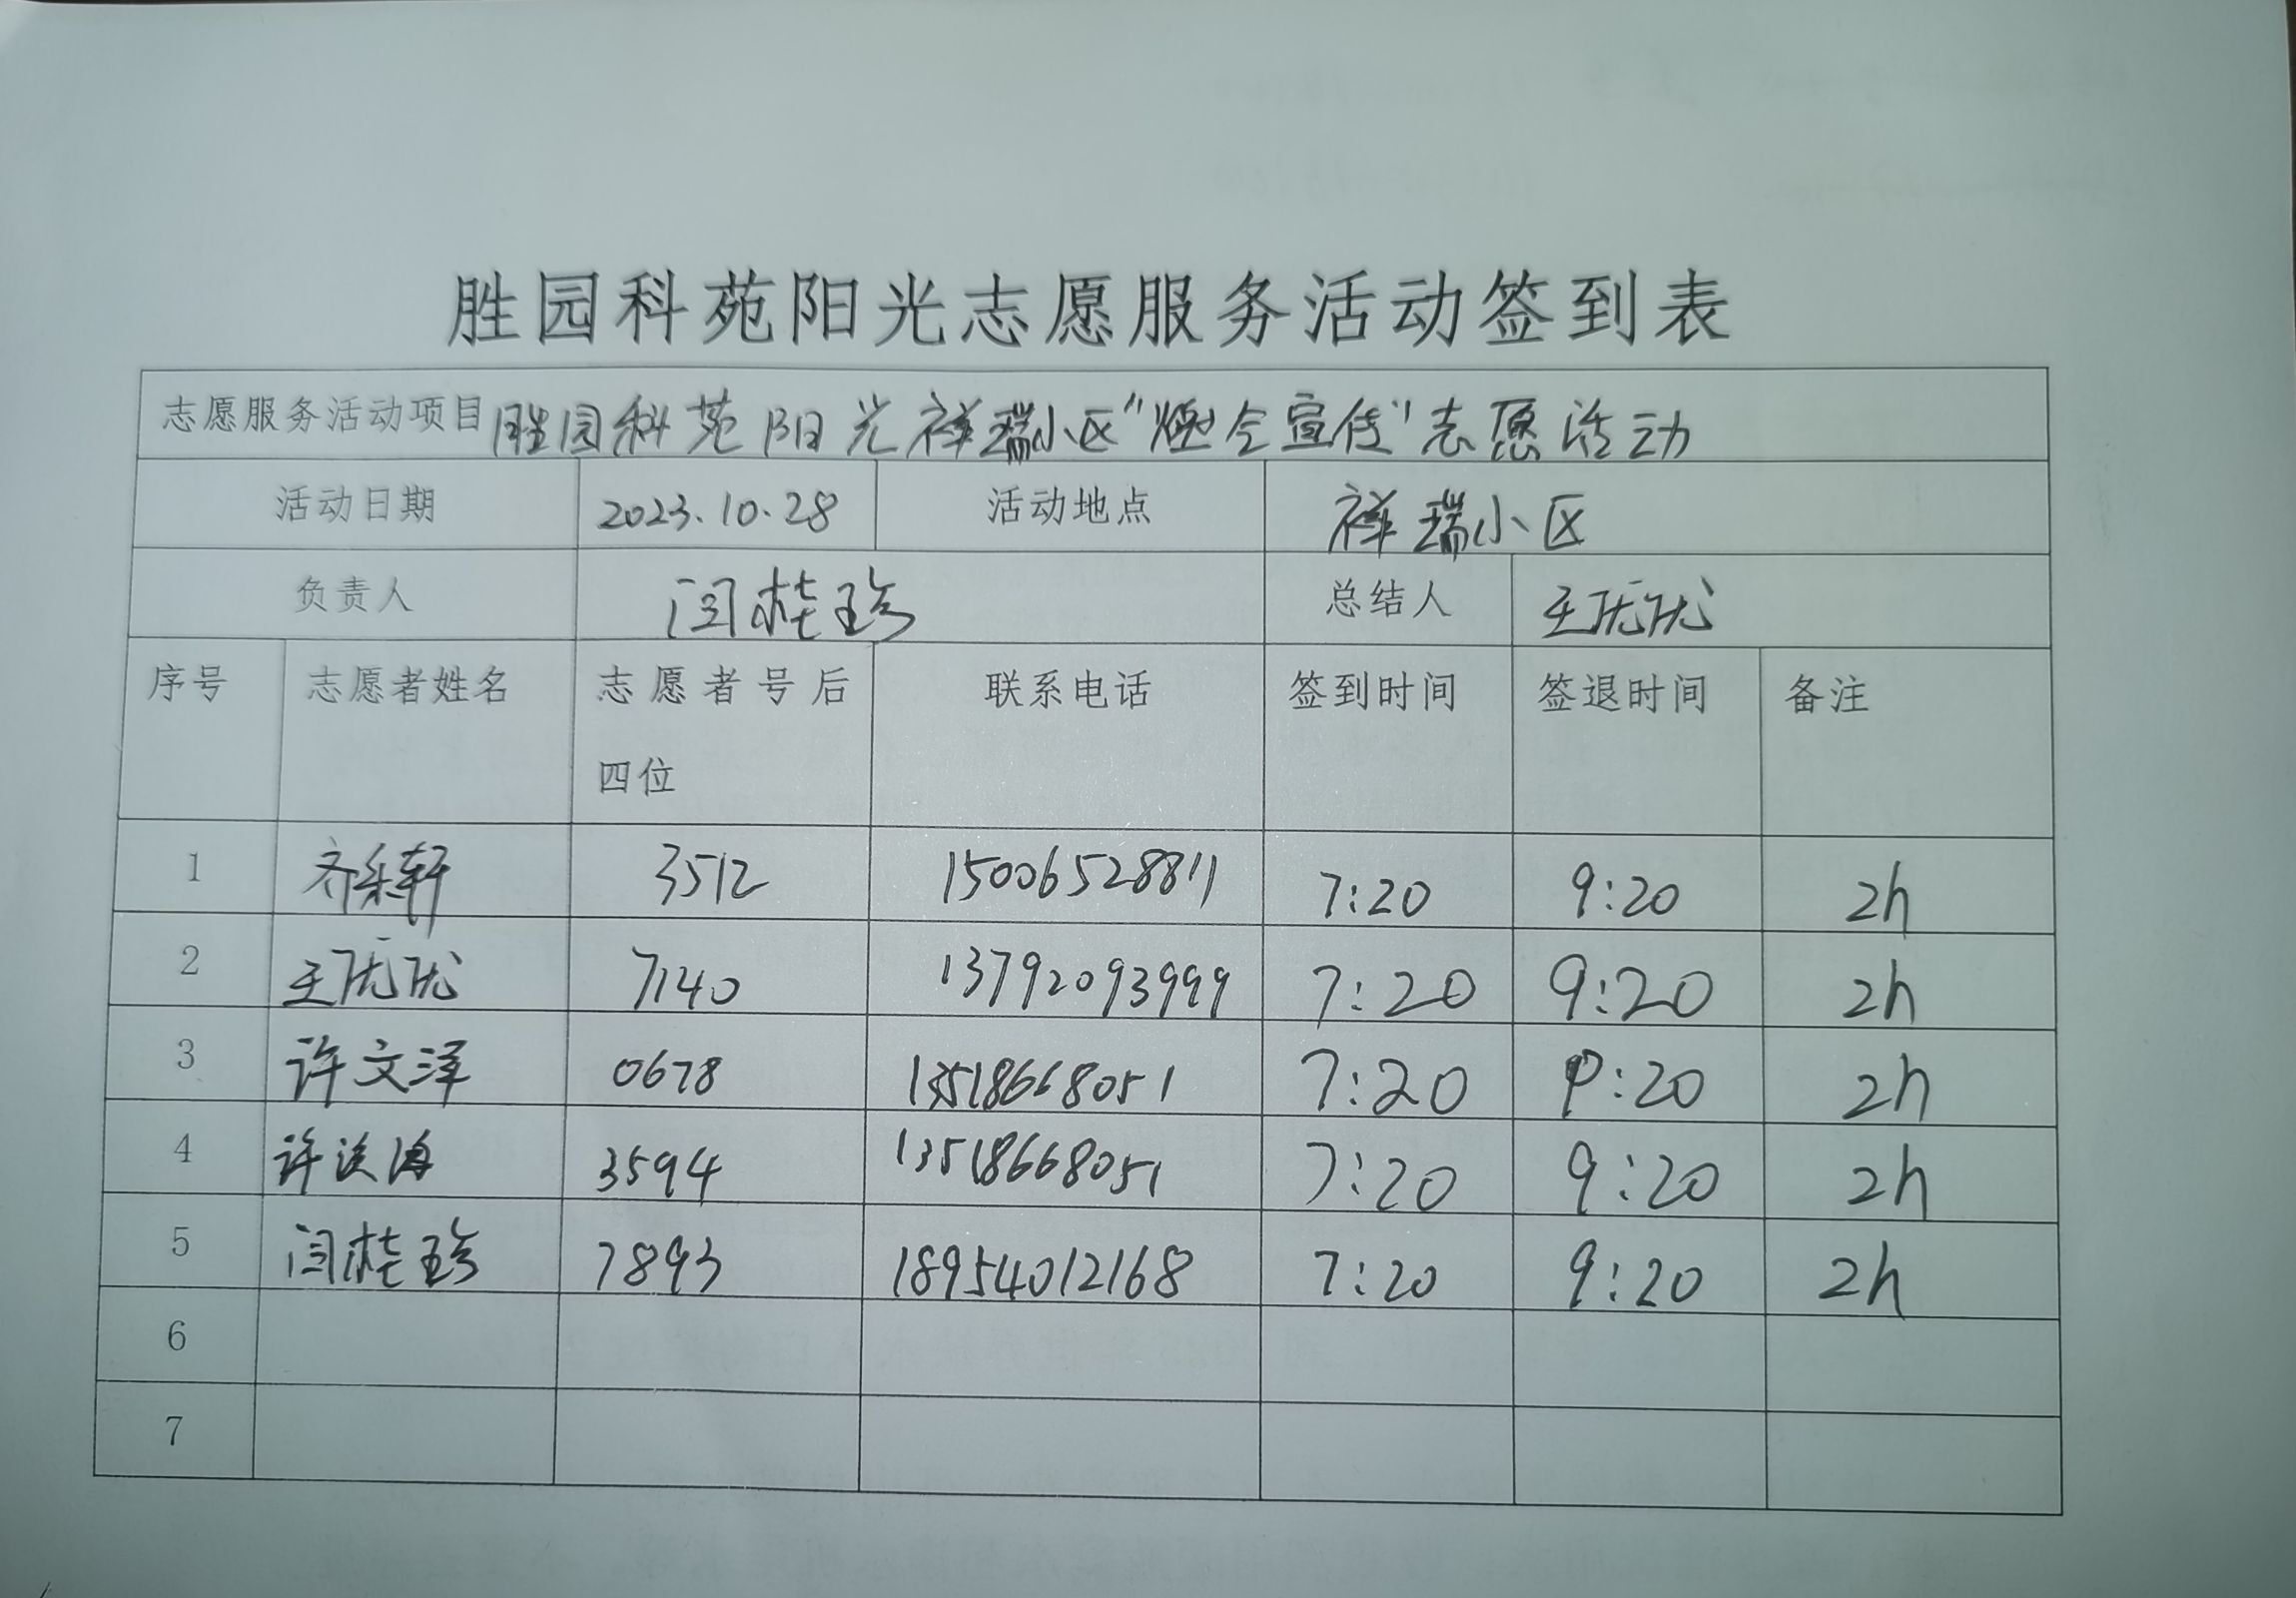 胜园科苑阳光志愿服务活动签到表
志愿服务活动项目 胜园科苑阳光祥瑞小区“燃气宣传”志愿活动
活动日期 2023.10.28 活动地点 祥瑞小区
负责人 闫桂珍 总结人 王优优
序号 志愿者姓名 志愿者号后 联系电话 签到时间 签退时间 备注
四位
1 齐采轩 3512 15006528811 7:20 9:20 2h
2 王优优 7140 13792093999 7:20 9:20 2h
3 许文泽 0678 13518668051 7:20 9:20 2h
4 许海 3594 13518668051 7:20 9:20 2h
5 闫桂珍 7893 18954012168 7:20 9:20 2h
6
7